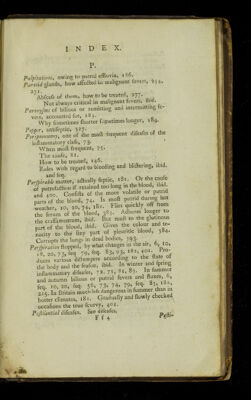 INDEX.
P.
Palpitations, owing to putrid effluvia, 106.
Parotid glands, how affected in malignant fevers, 254,
271.
Abscess of them, how to be treated, 277.
Not always critical in malignant fevers, ibid.
Paroxysms of bilious or remitting and intermitting fe-
vers, accounted for, 183.
Why sometimes shorter sometimes longer, 189.
Pepper, antiseptic, 327.
Peripneumony, one of the most frequent diseases of the
inflammatory class, 73.
When most frequent, 75.
The cause, 21.
How to be treated, 146.
Rules with regard to bleeding and blistering, ibid.
and seq.
Perspirable matter, actually septic, 181. Or the cause
of putrefaction if retained too long in the blood, ibid.
and 400. Consists of the more volatile or putrid
parts of the blood, 74. Is most putrid during hot
weather, 10, 20, 74, 181. Flies quickly off from
the serum of the blood, 383. Adheres longer to
the crassamentum, ibid. But most to the glutinous
part of the blood, ibid. Gives the colour and te-
nacity to the sizy part of pleuritic blood, 384.
Corrupts the lungs in dead bodies, 393.
Perspiration stopped, by what changes in the air, 6, 10,
18, 20, 73, seq. 79, seq. 83, 93, 181, 401. Pro-
duces various distempers according to the state of
the body and the season, ibid. In winter and spring
inflammatory diseases, 12, 21, 81, 83. In summer
and autumn bilious or putrid fevers and fluxes, 6,
seq. 10, 20, seq. 56, 73, 74, 79, seq. 83, 181,
215. In Britain much less dangerous in summer than in
hotter climates, 181. Gradually and slowly checked
occasions the true scurvy, 401.
Pestilential diseases. See diseases.
F f 4
Pesti-